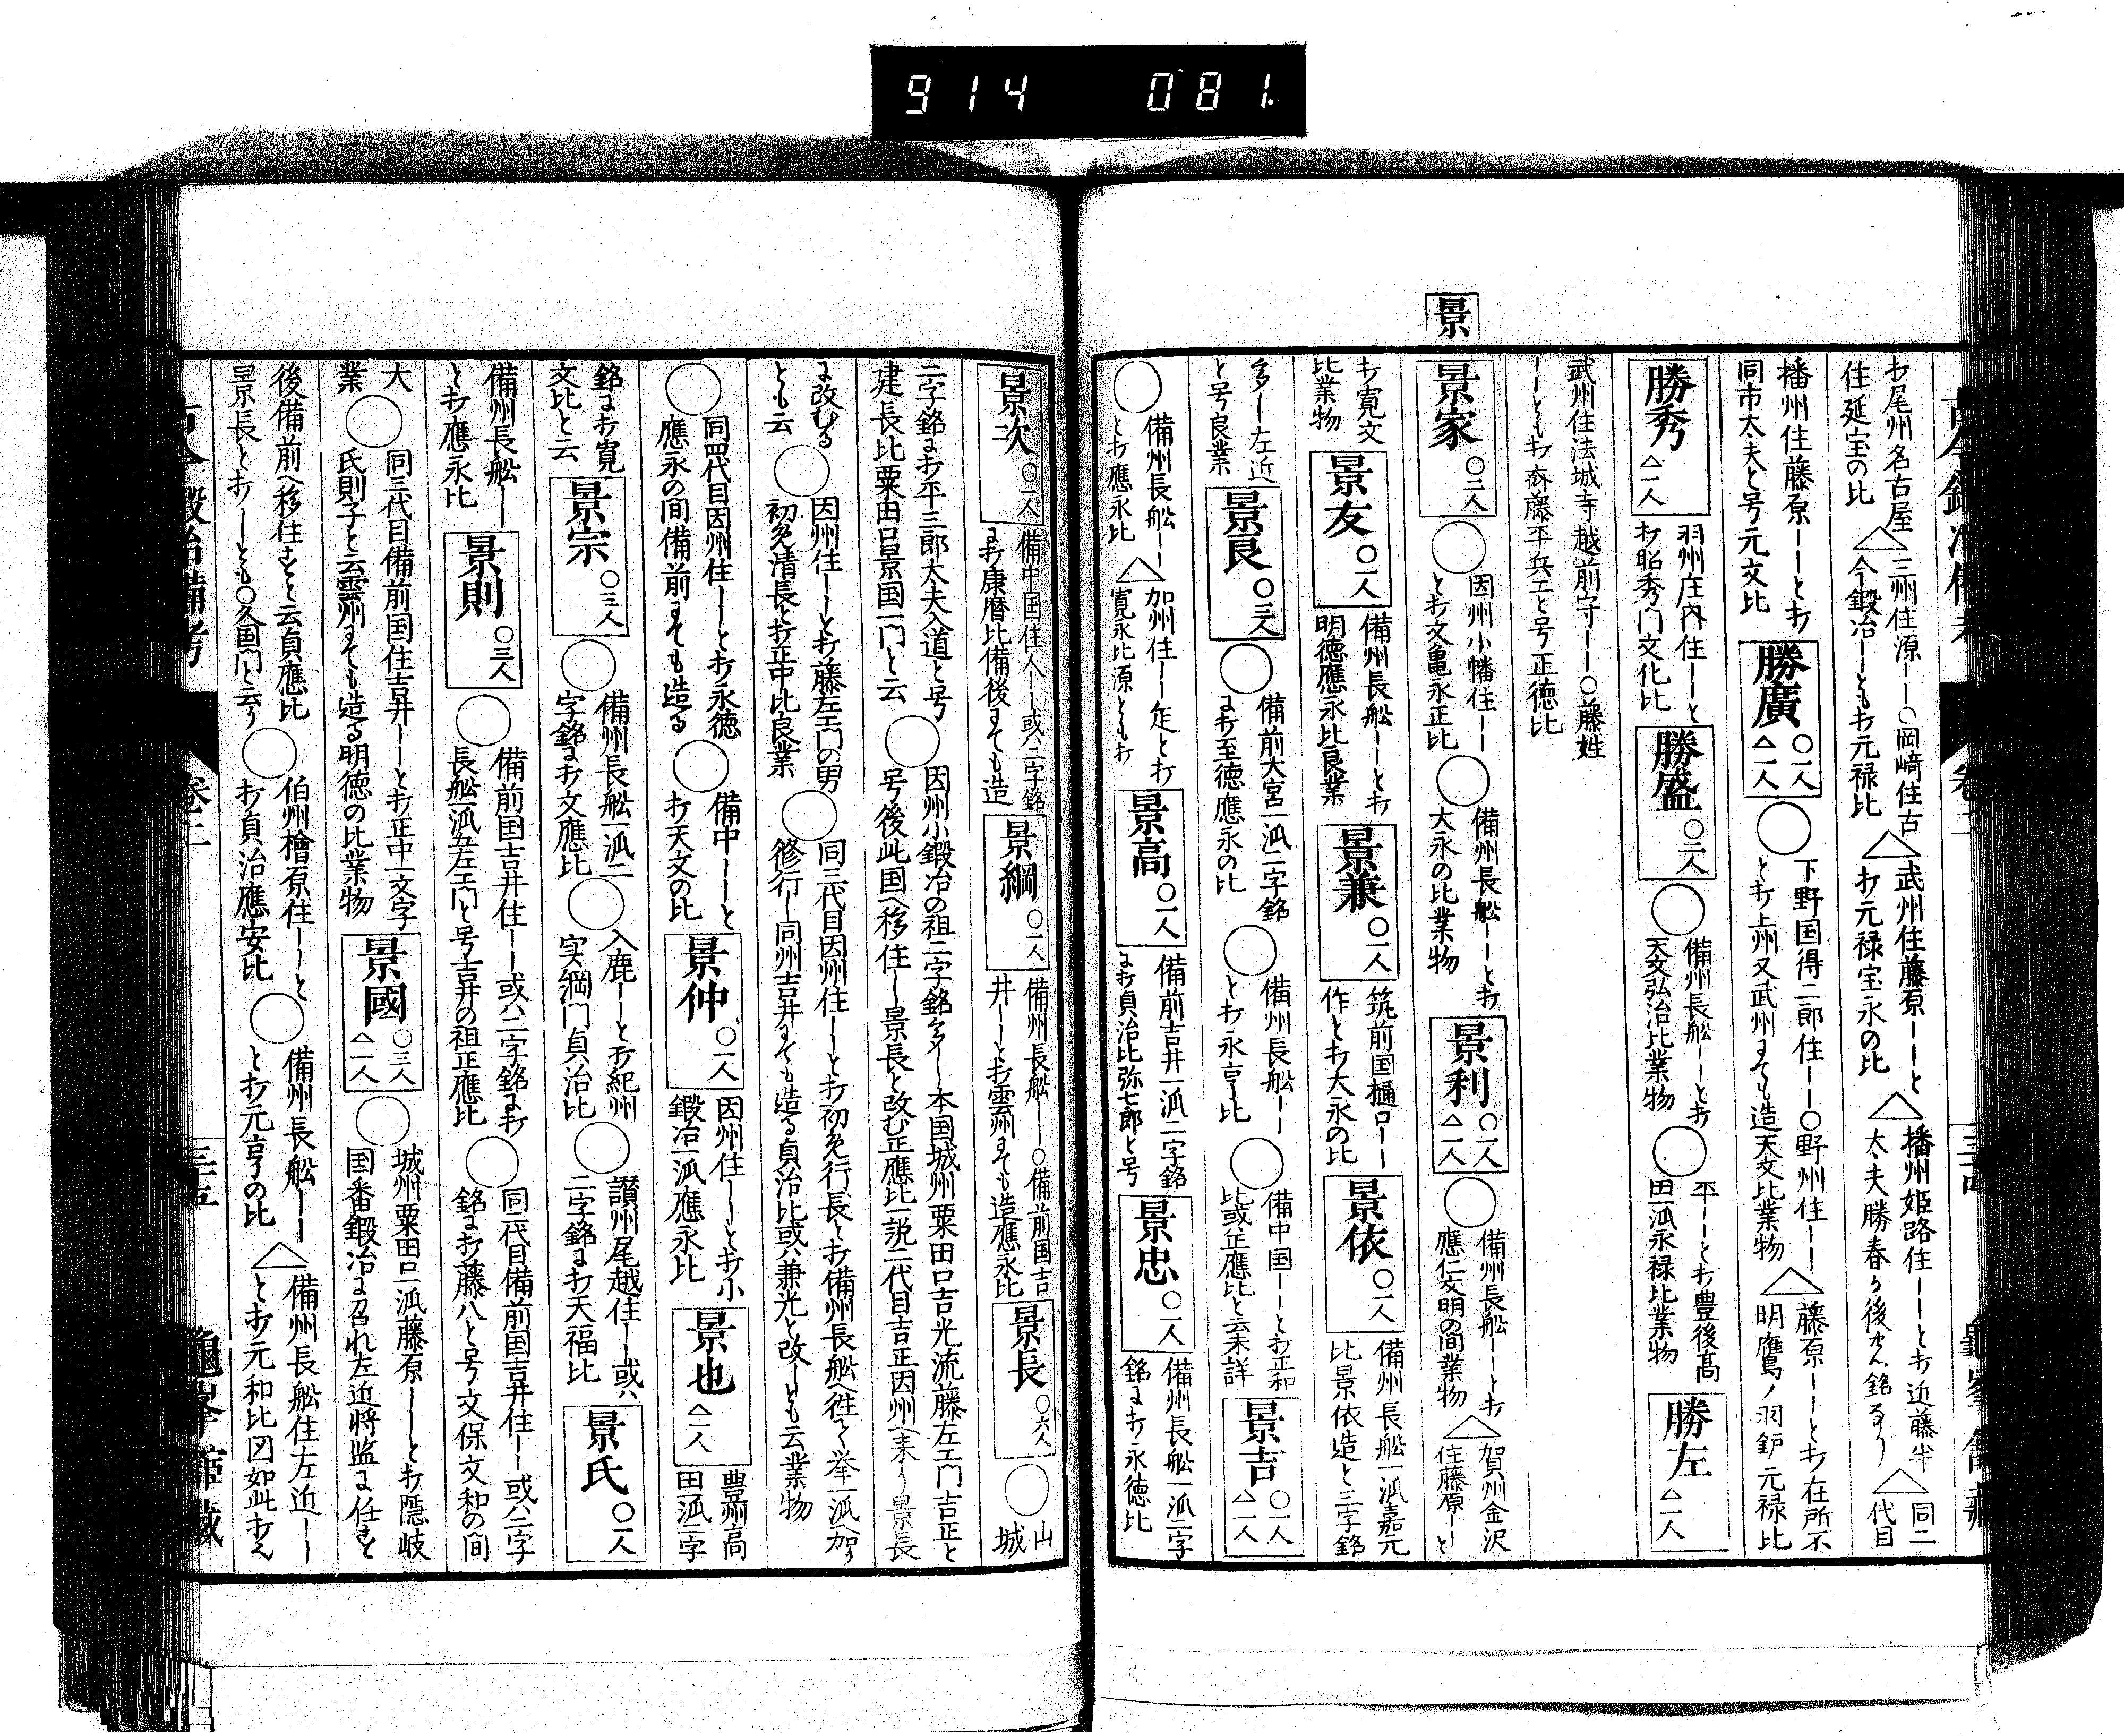 914 081
景
打尾州名古屋
住延宝の比
△
三州住源ーー○岡﨑住古
今鍛冶ーとも打元禄比
△
武州住藤原ーーと
打元禄宝永の比
△
播州姫路住ーーと打近藤半
太夫勝春
△
同二
代目
播州住藤原ーーと打
同市太夫と号元文比
勝廣 ○一人 △一人
○
下野国得二郎住ーー○野州住ーー
と打上州又武州ニても造天文比業物
△
藤原ーーと打在所不
明鷹ノ羽鈩元禄比
勝秀 △一人
羽州庄内住ーーと
打昭秀門文化比
勝盛 ○二人
○
備州長船ーーと打
天文弘治比業物
○
平ーーと打豊後髙
田一派永禄比業物
勝左 △一人
武州住法城寺越前守ーー○藤姓
ーーとも打斎藤平兵エと号正徳比
景家 ○二人
○
因州小幡住ーー
と打文亀永正比
○
備州長船ーーと打
大永の比業物
景利 ○一人 △一人
○
備州長船ーーと打
應仁文明の間業物
△
賀州金沢
住藤原ーーと
打寛文
比業物
景友 ○一人
備州長船ーーと打
明徳應永比良業
景兼 ○一人
筑前国樋口ーー
作と打大永の比
景依 ○一人
備州長船一派嘉元
比景依造と三字銘
多ー左近
と号良業
景良 ○三人
○
備前大宮一派二字銘
ニ打至徳應永の比
○
備州長船ーー
と打永享比
○
備中国ーーと打正和
比或正應比と云未詳
景吉 ○一人 △一人
○
備州長船ーー
と打應永比
△
加州住ーー作と打
寛永比源とも打
景高 ○一人
備前吉井一派二字銘
ニ打貞治比弥七郎と号
景忠 ○一人
備州長船一派二字
銘ニ打永徳比
景次 ○一人
備中国住人ーー或ハ二字銘
ニ打康暦比備後ニても造
景綱 ○一人
備州長船ーー○備前国吉
井ーーと打雲州ニても造應永比
景長 ○六人
○
山
城
二字銘ニ打平三郎大夫入道と号
建長比粟田口景国一門と云
○
因州小鍛冶の祖二字銘多ー本国城州粟田口吉光流藤左エ門吉正と
号後此国へ移住ー景長と改む正應比一説二代目吉正因州へ来り景長
ニ改むる
とも云
○
因州住ーーと打藤左エ門の男
初め清長と打正中比良業
○
同三代目因州住ーーと打初め行長と打備州長船へ往て挙一派へ加り
修行ー同州吉井ニても造る貞治比或ハ兼光と改ーとも云業物
○
同四代目因州住ーーと打永徳
應永の間備前ニても造る
○
備中ーーと
打天文の比
景仲 ○一人
因州住ーーと打小
鍛冶一派應永比
景也 △一人
豊州高
田派二字
銘ニ打寛
文比と云
景宗 ○三人
○
備州長船一派二
字銘ニ打文應比
○
入鹿ーーと打紀州
実綱門貞治比
○
讃州尾越住ーー或ハ
二字銘ニ打天福比
景氏 ○一人
備州長船ーー
と打應永比
景則 ○三人
○
備前国吉井住ーー或ハ二字銘ニ打
長船一派五左エ門と号吉井の祖正應比
○
同二代目備前国吉井住ーー或ハ二字
銘ニ打藤八と号文保文和の間
大
業
○
同三代目備前国住吉井ーーと打正中一文字
氏則子と云雲州ニても造る明徳の比業物
景國 ○三人 △一人
○
城州粟田口一派藤原ーーと打隠岐
国番鍛冶ニ召れ左近将監ニ任を
後備前へ移住をと云貞應比
景長と打ーとも○久国門と云り
○
伯州檜原住ーーと
打貞治應安比
○
備州長船ーー
と打元亨の比
△
備州長船住左近ーー
と打元和比
卷二
三十五